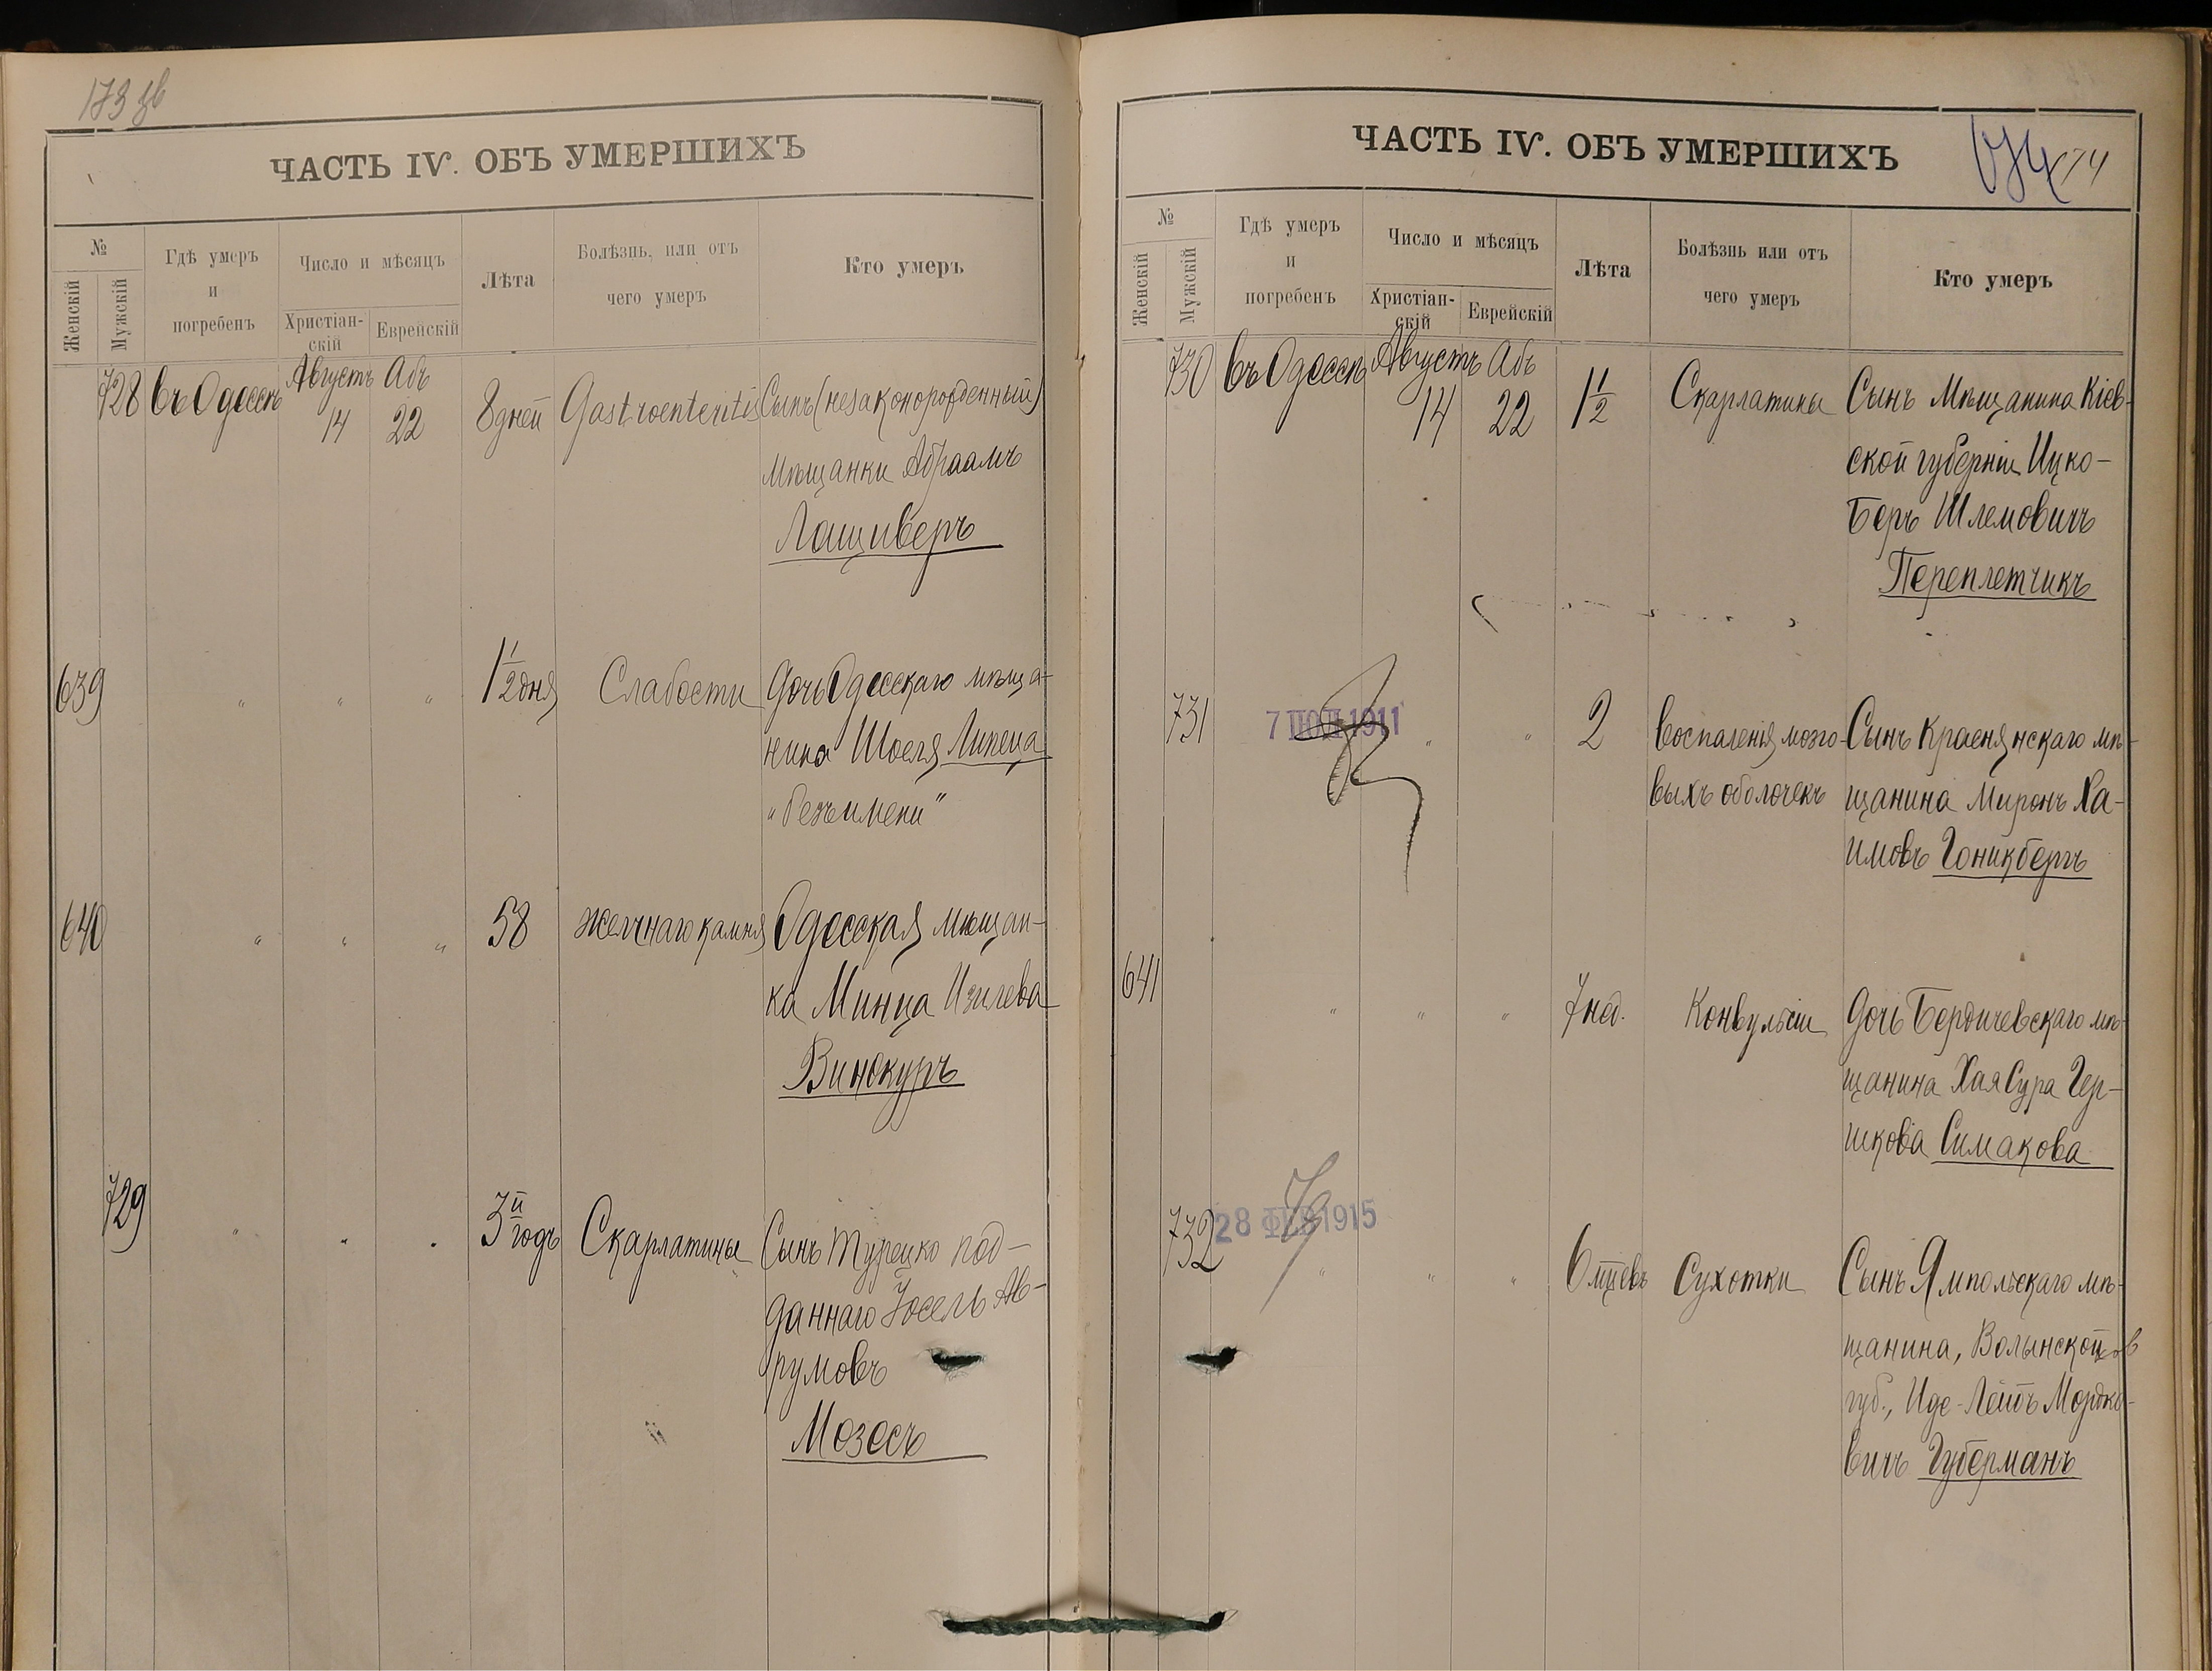 173 зв
ЧАСТЬ IV. ОБЪ УМЕРШИХЪ
№
Женскій
Мужскій
Гдѣ умеръ
и
погребенъ
Число и мѣсяцъ
Христіан-
скій
Еврейскій
Лѣта
Болѣзнь, или отъ
чего умеръ
Кто умеръ
728 въ Одессѣ Августъ Абъ
14 22 8 дней Gastroenteritis Сынъ (незаконорожденный)
Мѣщанки Абраамъ
Лащиверъ
639 " " " 1 1/2 дня Слабости Дочь Одесскаго мѣща-
нина Шоеля Липеца
"безъ имени"
640 " " " 58 желчнаго камня Одесская мѣщан-
ка Минца Изилева
Винокуръ
729 " " " 3й годъ Скарлатины Сынъ Турецко под-
даннаго Іосель Ав-
румовъ
Мозесъ
ЧАСТЬ IV. ОБЪ УМЕРШИХЪ
174
№
Женскій
Мужскій
Гдѣ умеръ
и
погребенъ
Число и мѣсяцъ
Христіан-
скій
Еврейскій
Лѣта
Болѣзнь или отъ
чего умеръ
Кто умеръ
730 въ Одессѣ Августъ Абъ
14 22 1 1/2 Скарлатины Сынъ Мѣщанина Кіев-
ской губерніи Ицко-
Беръ Шлемовичъ
Переплетчикъ
731 7 ІЮЛ 1911 " " 2 Воспаленія мозго- Сынъ Краснянскаго мѣ-
выхъ оболочекъ щанина Миронъ Ха-
имовъ Гоникбергъ
641 " " " 7 нед. Конвульсіи Дочь Бердичевскаго мѣ-
щанина Хая Сура Гер-
шкова Симакова
732 28 ФЕВ 1915
" " " 6 мцевъ Сухотки Сынъ Ямпольскаго мѣ-
щанина, Волынской
губ., Иде-Лейбъ Мордко-
вичъ Губерманъ